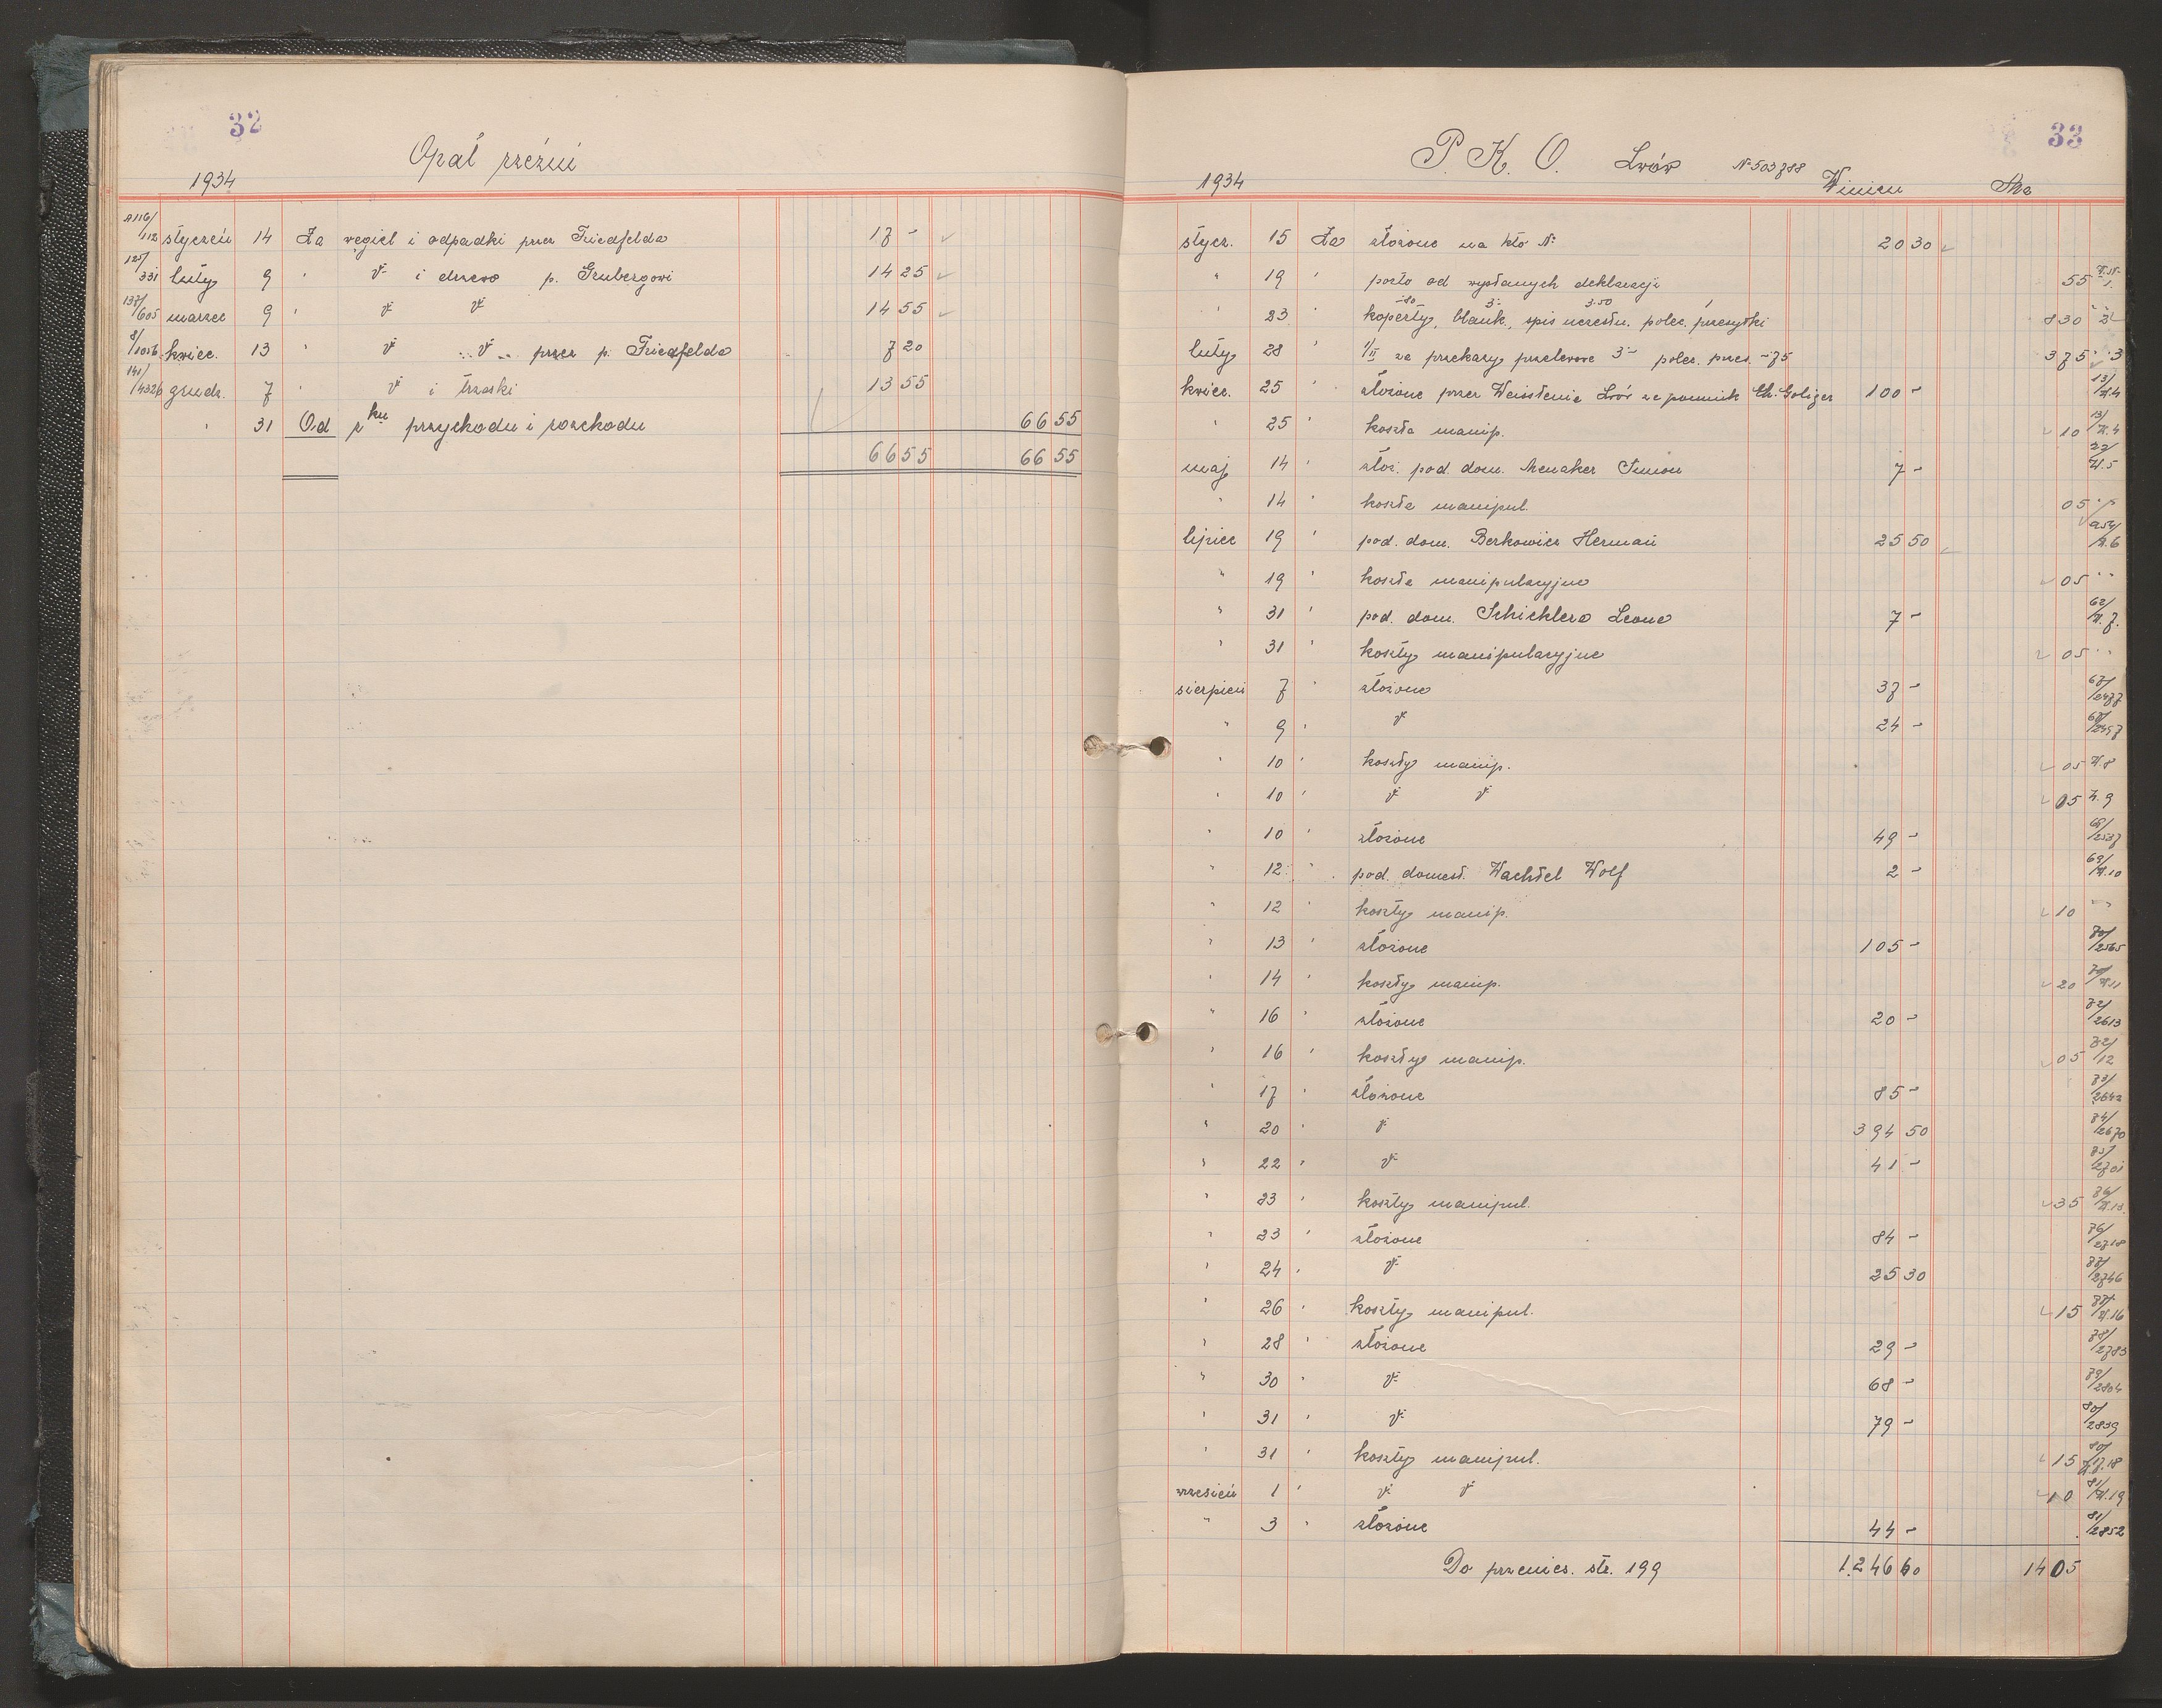 32
Opał rzeźni
1934
A116/112 styczeń 14 Za węgiel i odpadki przez Friedfelda 17 -
125/331 luty 9 " V i drzewo p. Grubergowi 14 25
137/605 marzec 9 " V V 14 55
8/1026 kwiec. 13 " V " V " przez p. Friedfelda 7 20
141/4326 grudz. 7 " V i trzaski 13 55
" 31 Od r ku przychodu i rozchodu 66 55
66 55 66 55
33
P. K. O. Lwów N° 503788
1934 Winien Ma
stycz. 15 Za złożone na kto N° 20 30
" 19 " porto od wysłanych deklaracji 55
-80 3.- 3.50 1
" 23 " koperty, blank., spis uczestn. polec. przesyłki 8 30
luty 28 " 1/II za przekazy przelewowe 3 - polec. przes. -75 3 75 " 3
kwiec. 25 " złożone przez Weissteina Lwów za pomnik Ch. Goliger 100 - 13/N.4
" 25 " koszta manip. 10 13/N.4
maj 14 " złoż. pod. dom. Menaker Simon 7 - 22/N.5
" 14 " koszta manipul. 05
lipiec 19 " pod. dom. Berkowicz Herman 25 50 /N.6
" 19 " koszta manipulacyjne 05 " "
" 31 " pod. dom. Schicklera Leona 7 - 62/N.7.
" 31 " koszty manipulacyjne 05 " "
sierpień 7 " złożone 37 - 67/2477
" 9 " V 24 - 68/2497
" 10 " koszty manip. 05 N.8
" 10 " V V 05 N.9
" 10 " złożone 49 - 68/2537
" 12 " pod. domest. Wachtel Wolf 2 - 69/N.10
" 12 " koszty manip. 10 " "
" 13 " złożone 105 - 70/2565
" 14 " koszty manip. 20 70/N.11
" 16 " złożone 20 - 72/2613
" 16 " koszty manip. 05 72/12
" 17 " złożone 85 - 73/2642
" 20 " V 394 50 74/2670
" 22 " V 41 - 75/2701
" 23 " koszty manipul. 35 76/N.13.
" 23 " złożone 84 - 76/2718
" 24 " V 25 30 77/2746
" 26 " koszty manipul. 15 77/N.16
" 28 " złożone 29 - 78/2783
" 30 " V 68 - 79/2804
" 31 " V 79 - 80/2839
" 31 " koszty manipul. 15 80/N.17.18
wrzesień 1 " V V 10 81/N.19
" 3 " złożone 44 - 81/2852
Do przenies. str. 199 1.246 60 14 05